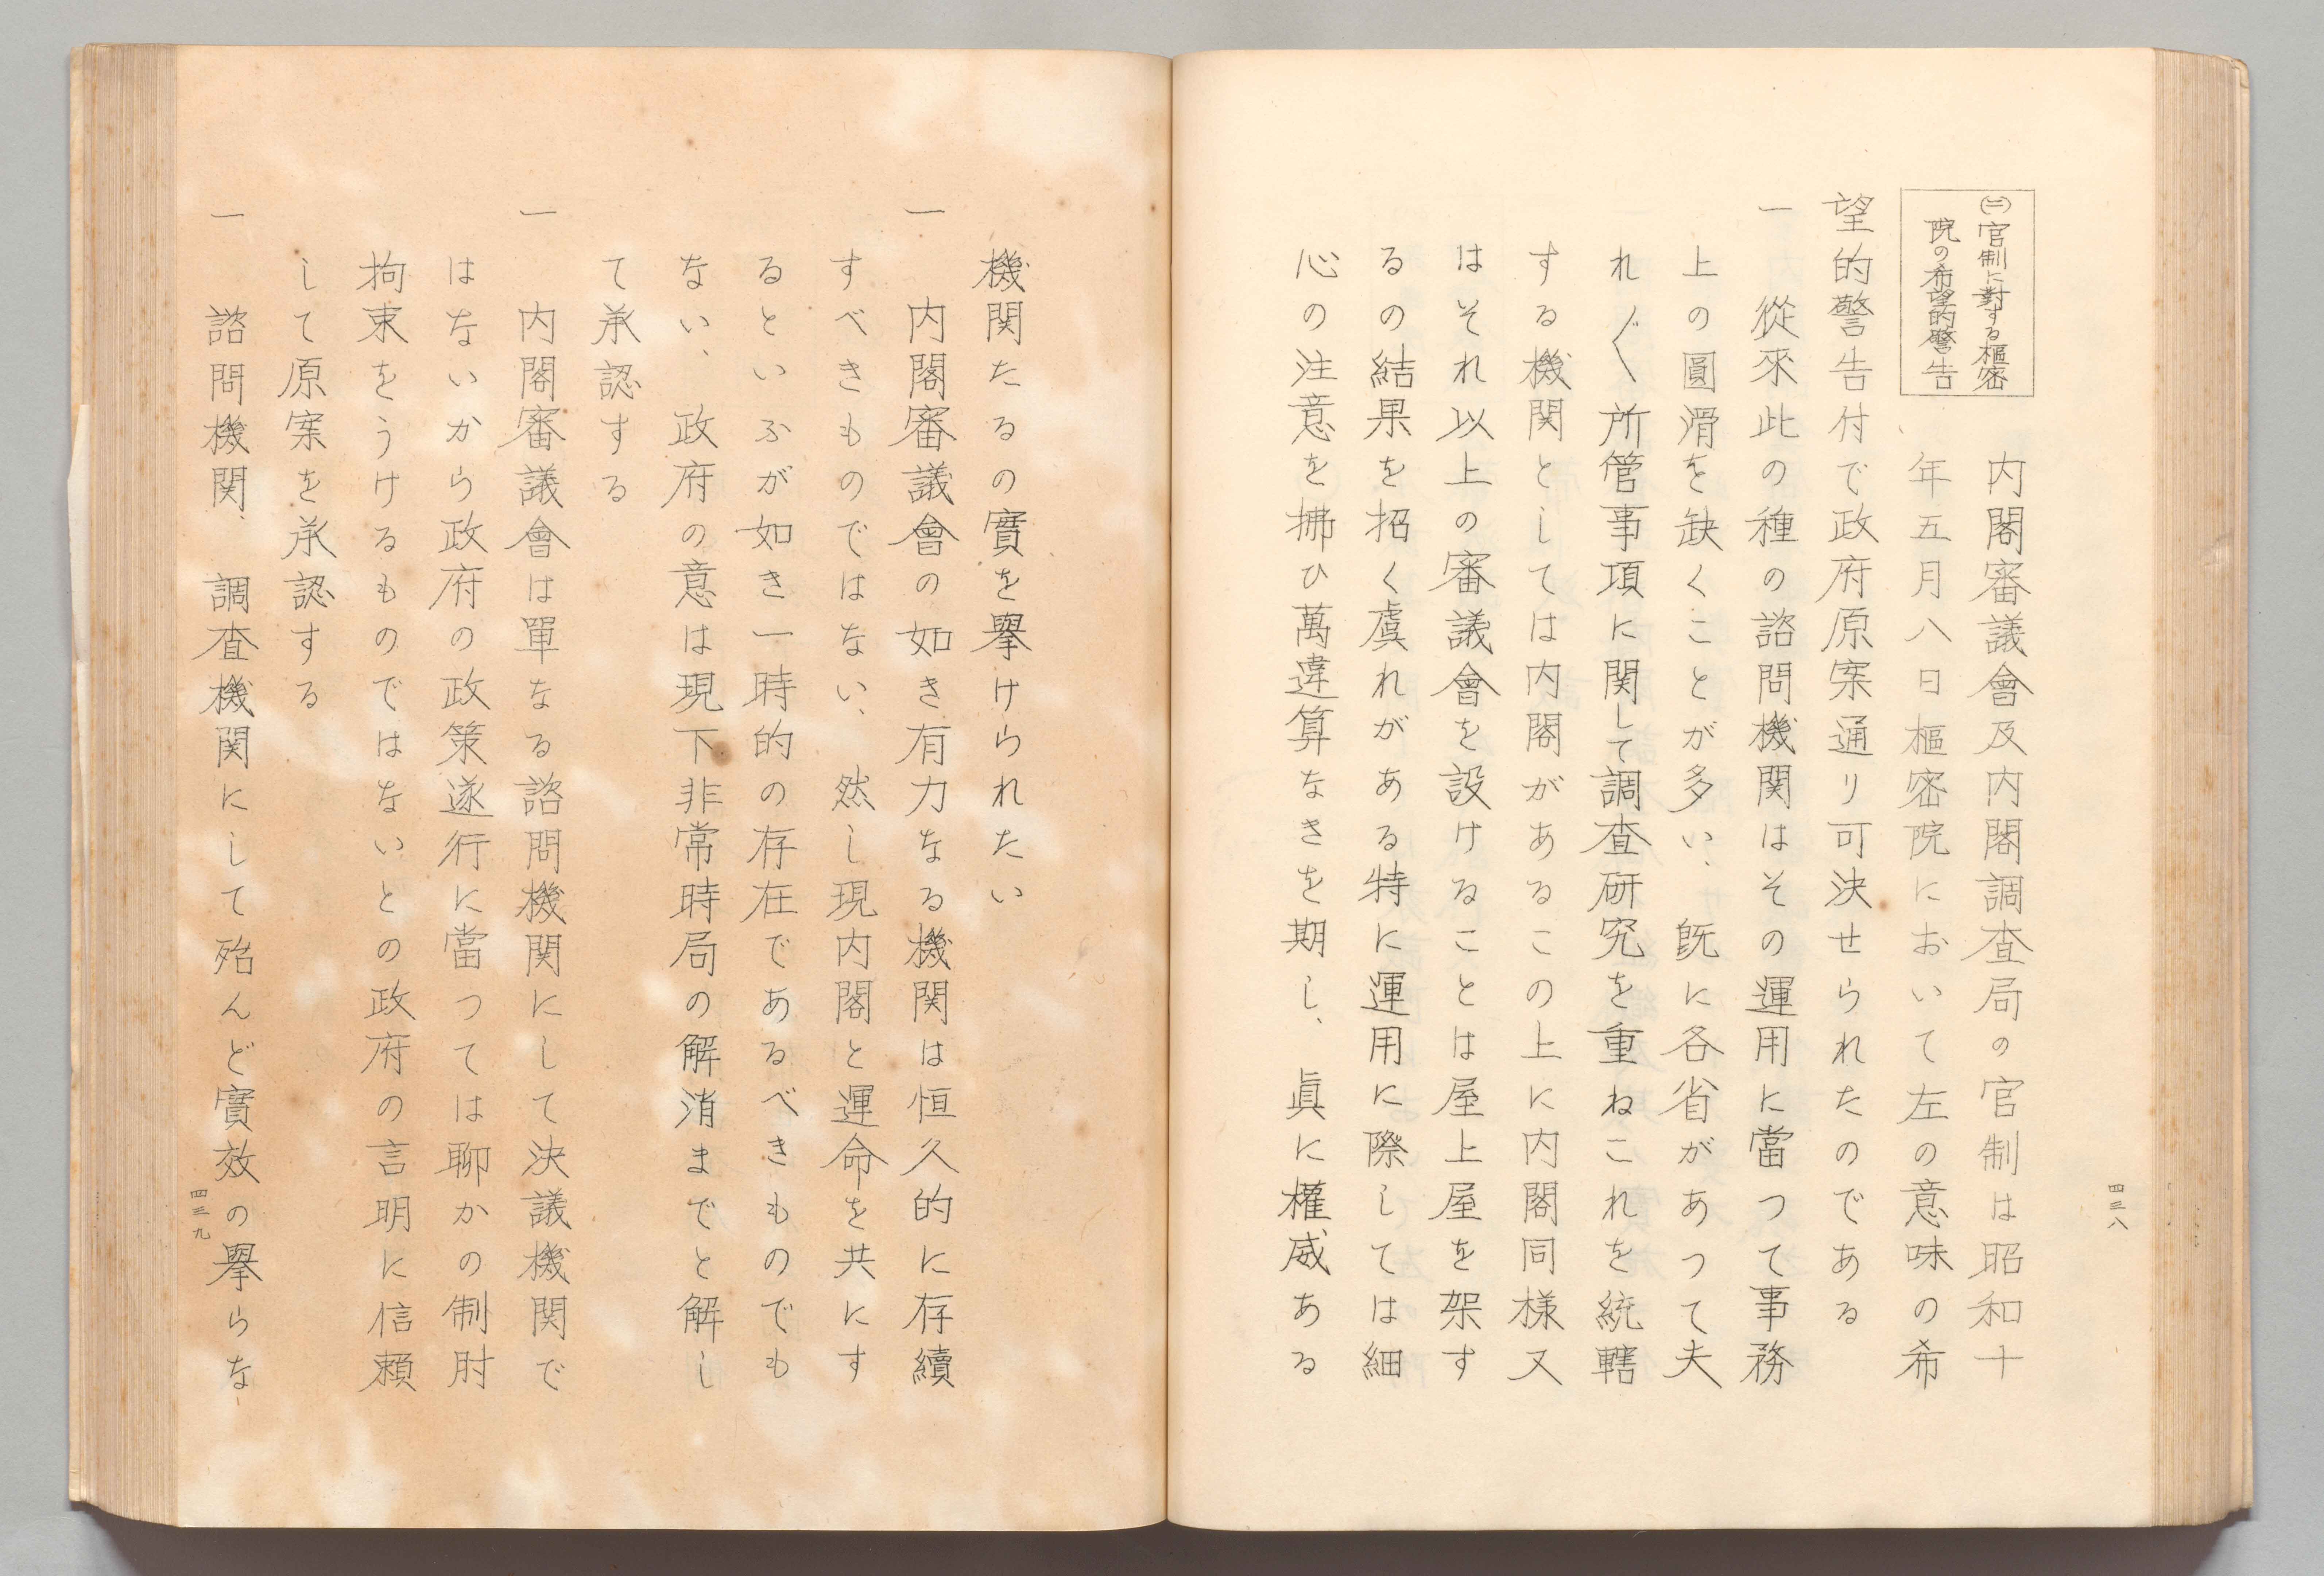 ㈡官制に對する樞密
院の希望的警告
内閣審議會及内閣調査局の官制は昭和十
年五月八日樞密院において左の意味の希
望的警告付で政府原案通リ可決せられたのである
一　從來此の種の諮問機関はその運用に當つて事務
上の圓滑を缺くことが多い、既に各省があつて夫
れ〴〵所管事項に関して調査研究を重ねこれを統轄
する機関としては内閣があるこの上に内閣同様又
はそれ以上の審議會を設けることは屋上屋を架す
るの結果を招く虞れがある特に運用に際しては細
心の注意を拂ひ萬違算なきを期し、眞に權威ある
四三八
機関たるの實を擧けられたい
一　内閣審議會の如き有力なる機関は恒久的に存續
すべきものではない、然し現内閣と運命を共にす
るといふが如き一時的の存在であるべきものでも
ない、政府の意は現下非常時局の解消までと解し
て承認する
一　内閣審議會は單なる諮問機関にして決議機関で
はないから政府の政策遂行に當つては聊かの制肘
拘束をうけるものではないとの政府の言明に信頼
して原案を承認する
一　諮問機関、調査機関にして殆んど實效の擧らな
四三九